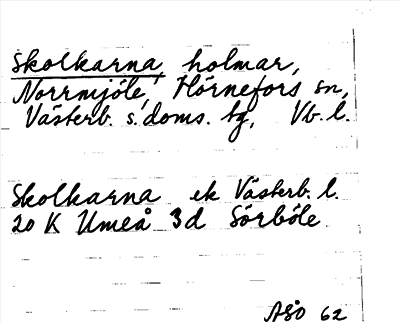 Skolkarna, holmar,
Norrmjöle, Hörnefors sn,
Västerb. s. doms. tg, Vb. l.
Skolkarna ek Västerb. l.
20 K Umeå 3d Sörböle
ASO 62